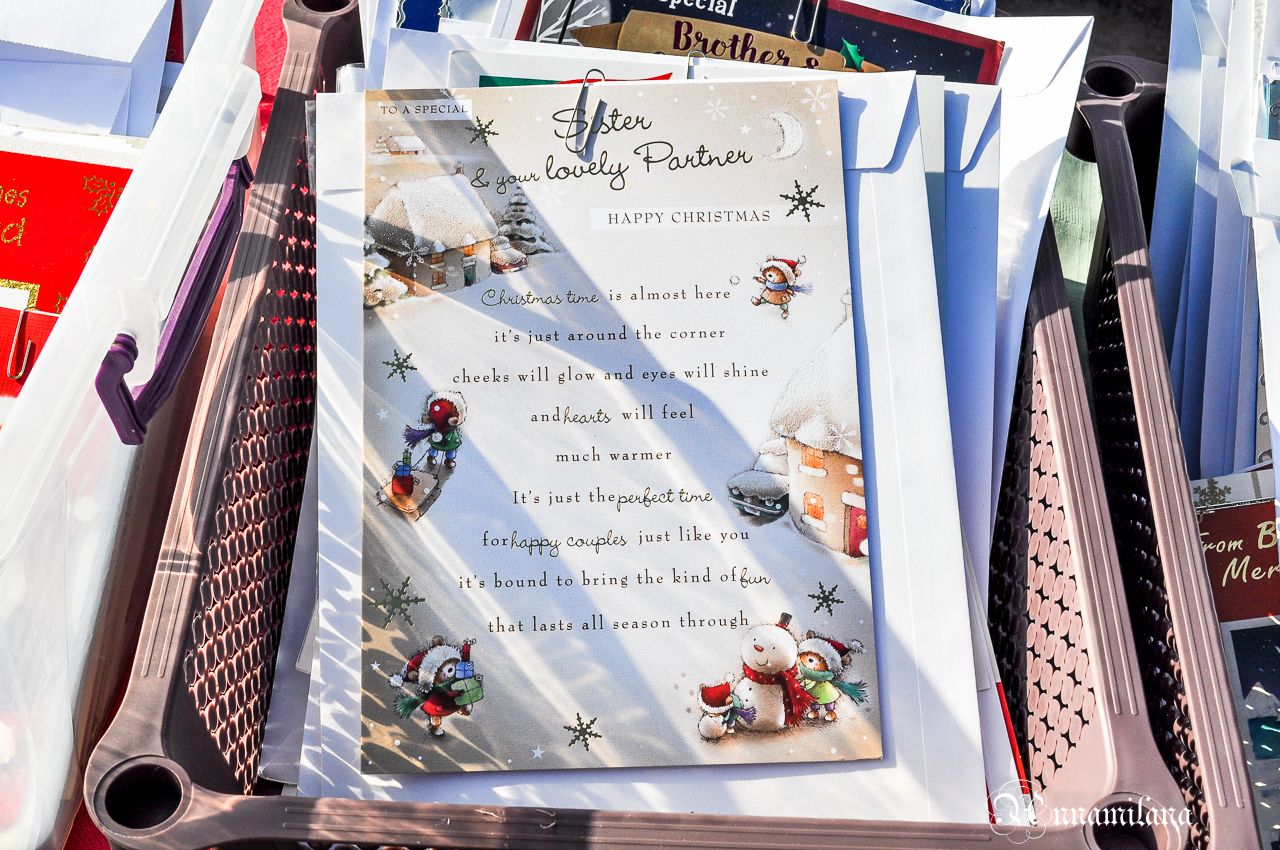 Special
Brother &
TO A SPECIAL
Sister
& your lovely Partner
HAPPY CHRISTMAS
Christmas time is almost here
it's just around the corner
cheeks will glow and eyes will shine
and hearts will feel
much warmer
It's just the perfect time
for happy couples just like you
it's bound to bring the kind of fun
that lasts all season through
From
Annamilana